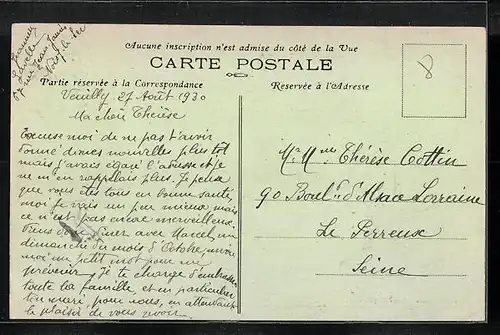 67 rue Jean Jaurès
Aucune inscription n'est admise du côté de la Vue
CARTE POSTALE
Partie réservée à la Correspondance
Réservée à l'Adresse
8
27 Août 1930
Ma chère Thérèse
Excuse moi de ne pas t'avoir
donné de mes nouvelles plus tôt
mais j'avais égaré l'adresse et je
ne m'en rappellais plus. Je pense
que vous êtes tous en bonne santé
moi je vais un peu mieux mais
ce n'est pas encore merveilleux.
Viens donc dîner avec Marcel un
dimanche du mois d'Octobre,
moi un petit mot pour me
prévenir, Je te charge d'embrasser
toute ta famille et en particulier
ton mari, pour nous, en attendant
le plaisir de vous revoir
Mr Mme Thérèse Cottin
90 Boul d d'Alsace Lorraine
Le Perreux
Seine